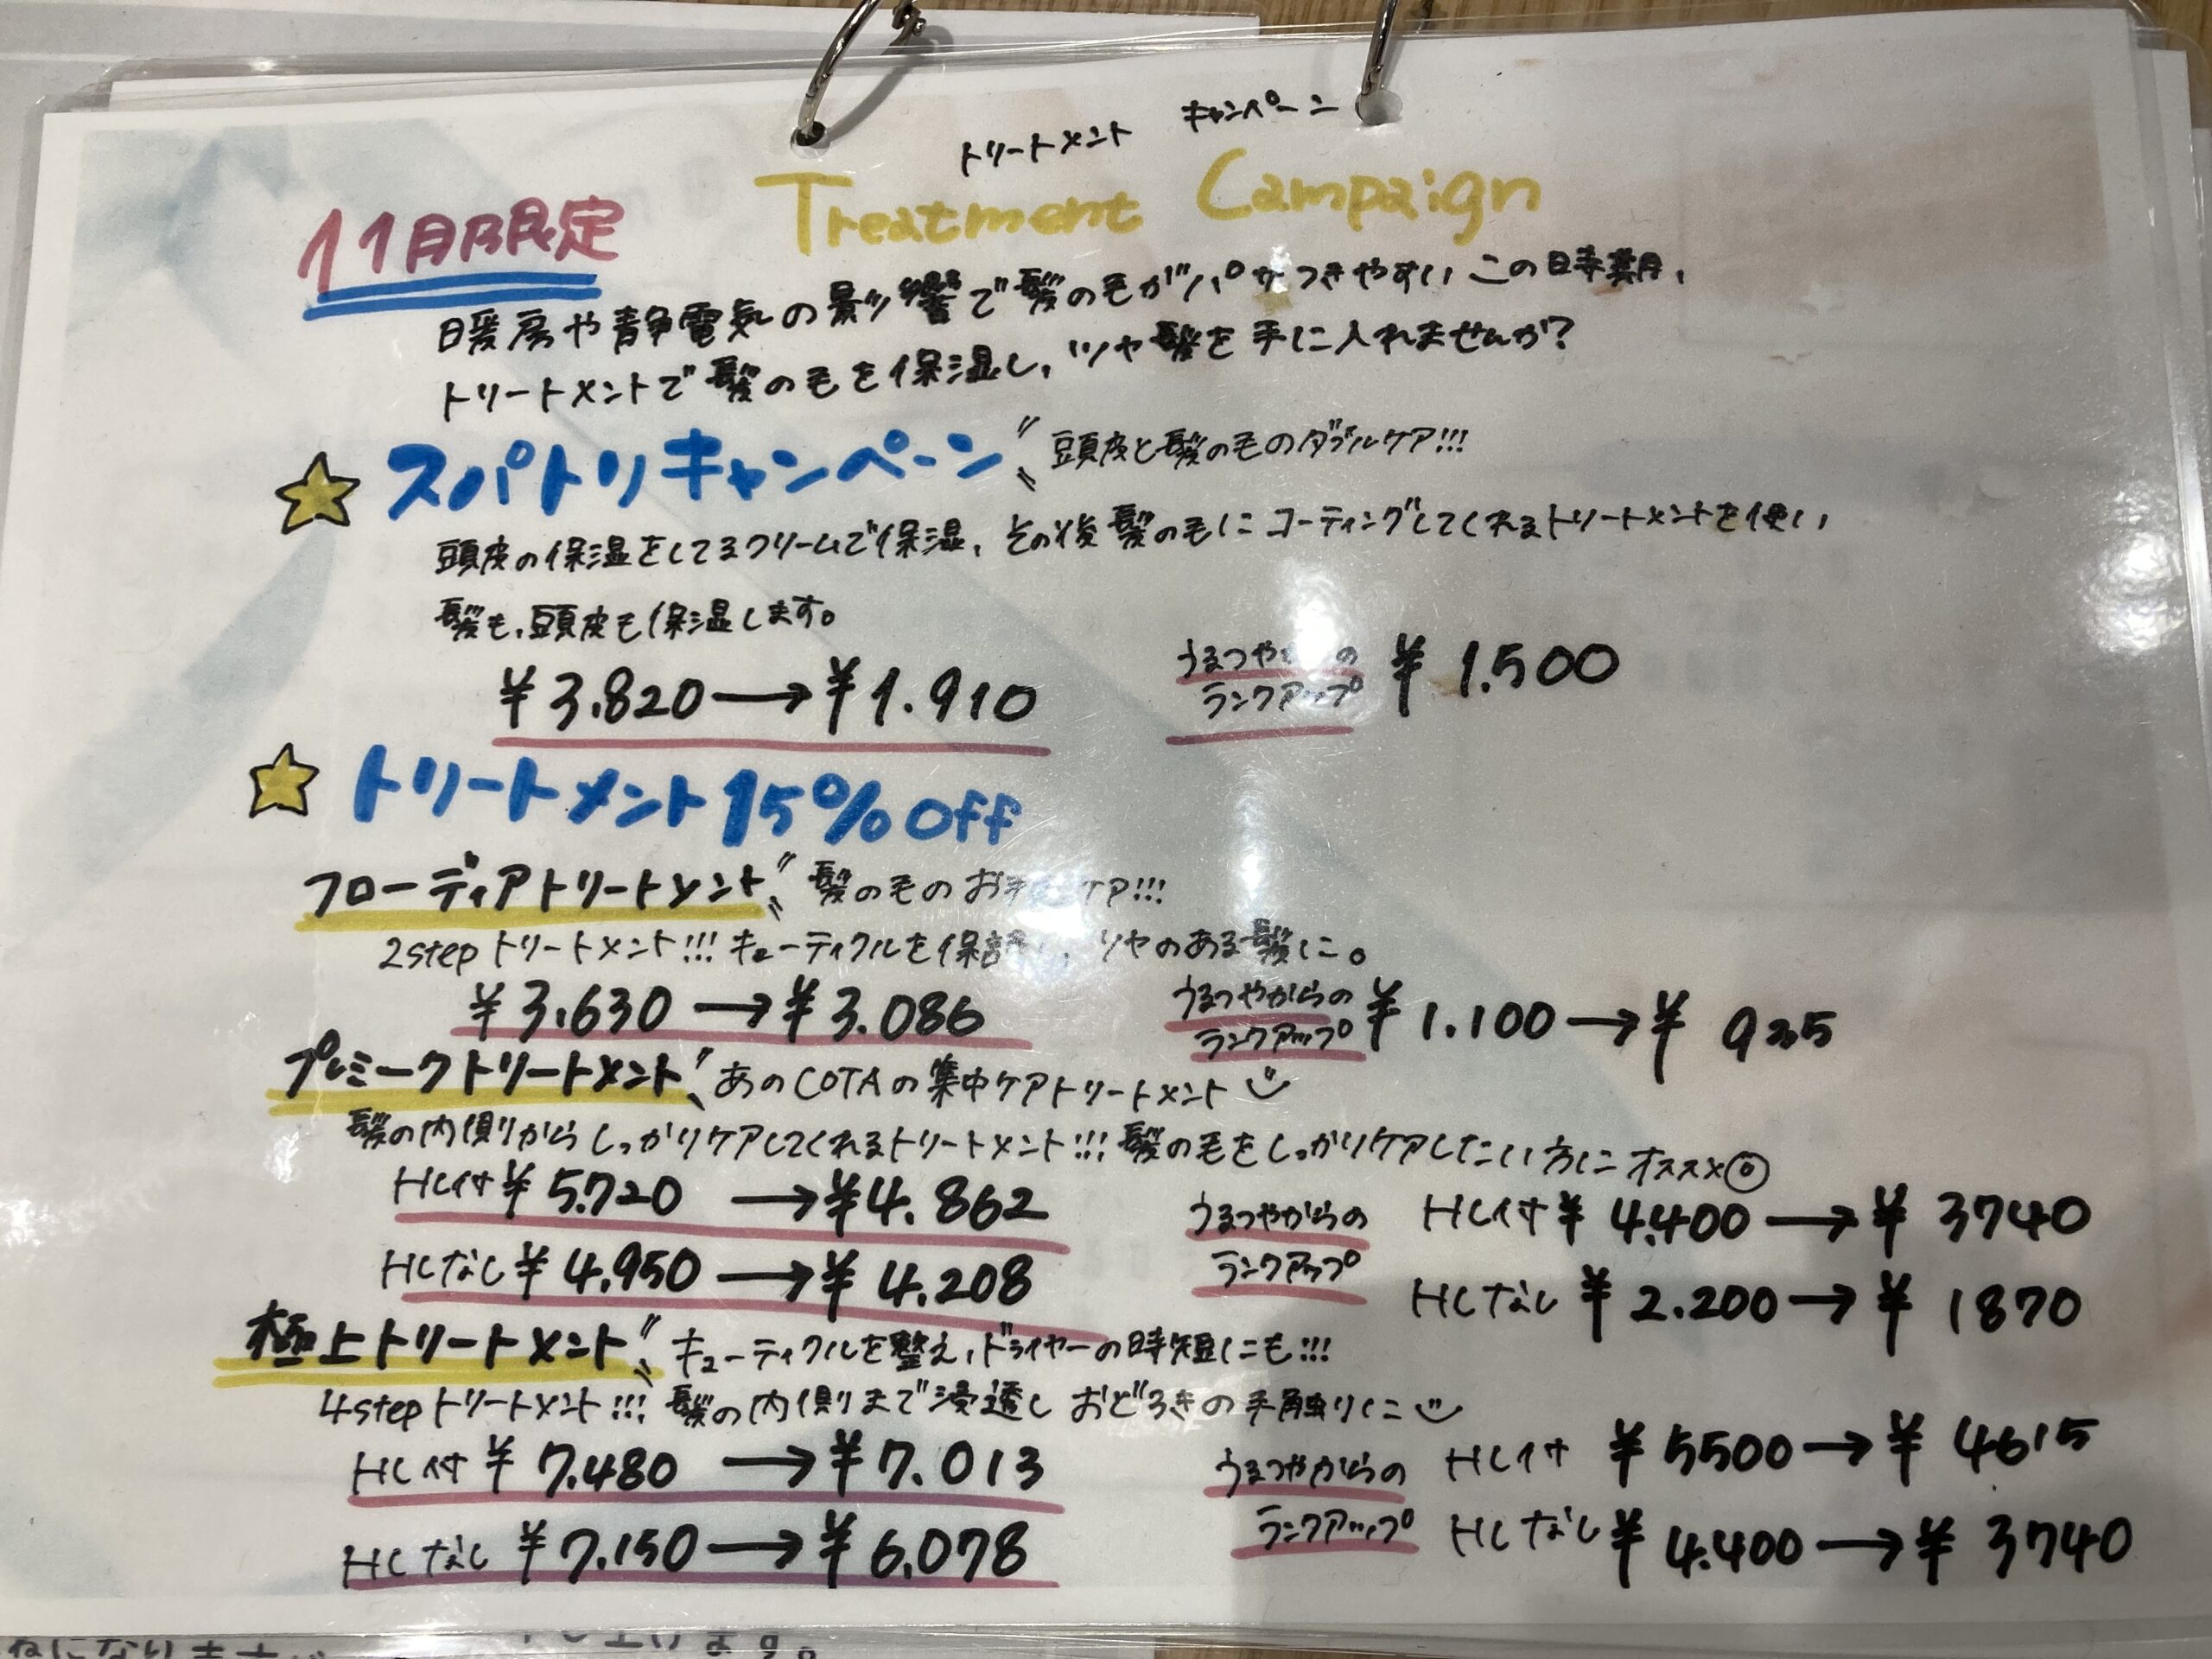 トリートメント キャンペーン
11月限定 Treatment Campaign
暖房や静電気の影響で髪の毛がパサつきやすいこの時期、
トリートメントで髪の毛を保湿し、ツヤ髪を手に入れませんか?
スパトリキャンペーン〝頭皮と髪の毛のダブルケア!!!
頭皮の保湿をしてるクリームで保湿、その後髪の毛にコーティングしてくれるトリートメントを使い
髪も、頭皮も保湿します。
¥3.820→¥1.910 うるつや の
ランクアップ ¥1.500
トリートメント15%Off
フローディアトリートメント〝髪の毛のお ケア!!!
2stepトリートメント!!!キューティクルを保護 、ツヤのある髪に。
¥3.630→¥3.086 うるつやからの
ランクアップ ¥1.100→¥935
プレミークトリートメント〝あのCOTAの集中ケアトリートメント
髪の内側からしっかりケアしてくれるトリートメント!!!髪の毛をしっかりケアしたい方にオススメ◎
HC付¥5.720→¥4.862 うるつやからの HC付¥4.400→¥3740
HCなし¥4.950→¥4.208 ランクアップ HCなし¥2.200→¥1870
極上トリートメント〝キューティクルを整え、ドライヤーの時短にも!!!
4stepトリートメント!!!髪の内側まで浸透しおどろきの手触りに
HC付¥7.480→¥7.013 うるつやからの HC付¥5500→¥4615
HCなし¥7.150→¥6.078 ランクアップ HCなし¥4.400→¥3740